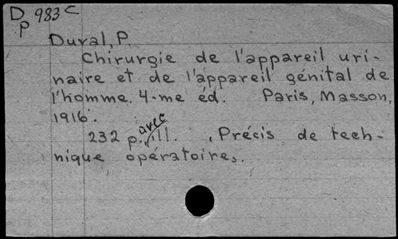 D 983 c
p
Duval, P.
Chirurgie de l'appareil uri-
naire et de l'appareil génital de
l'homme. 4-me éd. Paris, Masson,
1916.
232 p. avec ill. Précis de tech-
nique opératoire.